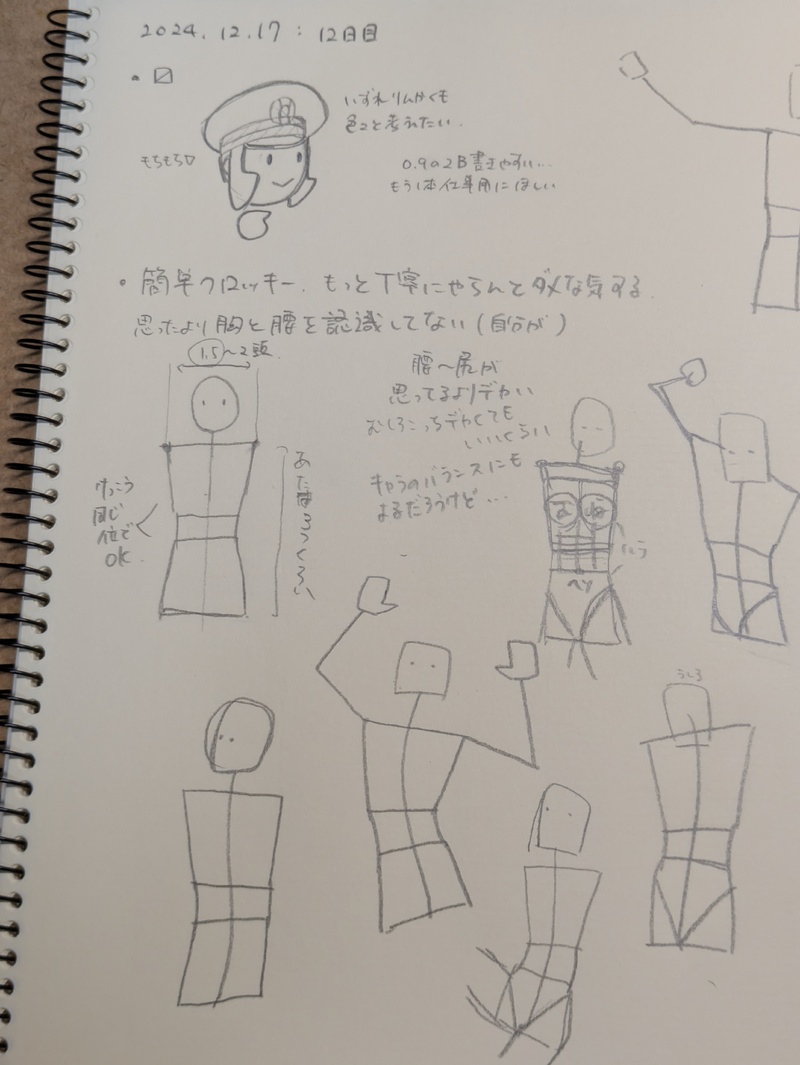 2024.12.17：12日目
いずれりんかくも
色々と考えたい．
もちもち♡
0.9の2B書きやすい…
もう1本仕事用にほしい
・簡単クロッキー．もっと丁寧にやらんとダメな気する．
思ったより胸と腰を認識してない（自分が）
1.5〜2頭．
腰〜尻が
思ってるよりデカい
むしろこっちデカくても
いいくらい
キャラのバランスにも
よるだろうけど…
けっこう
同じ
位で
OK．
むね
ヘソ
うしろ